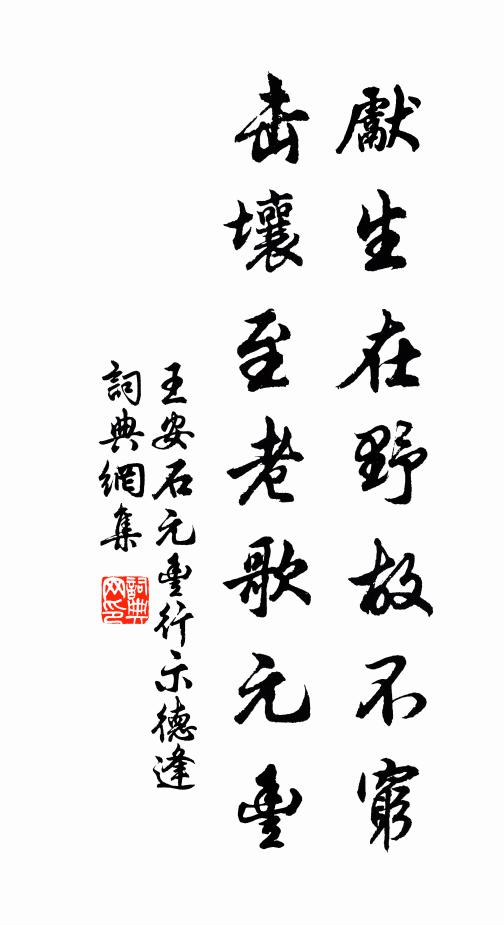 獻生在野故不窮
击壤至老歌元豐
王安石元豐行示德逢
詞典網集
詞典
网印